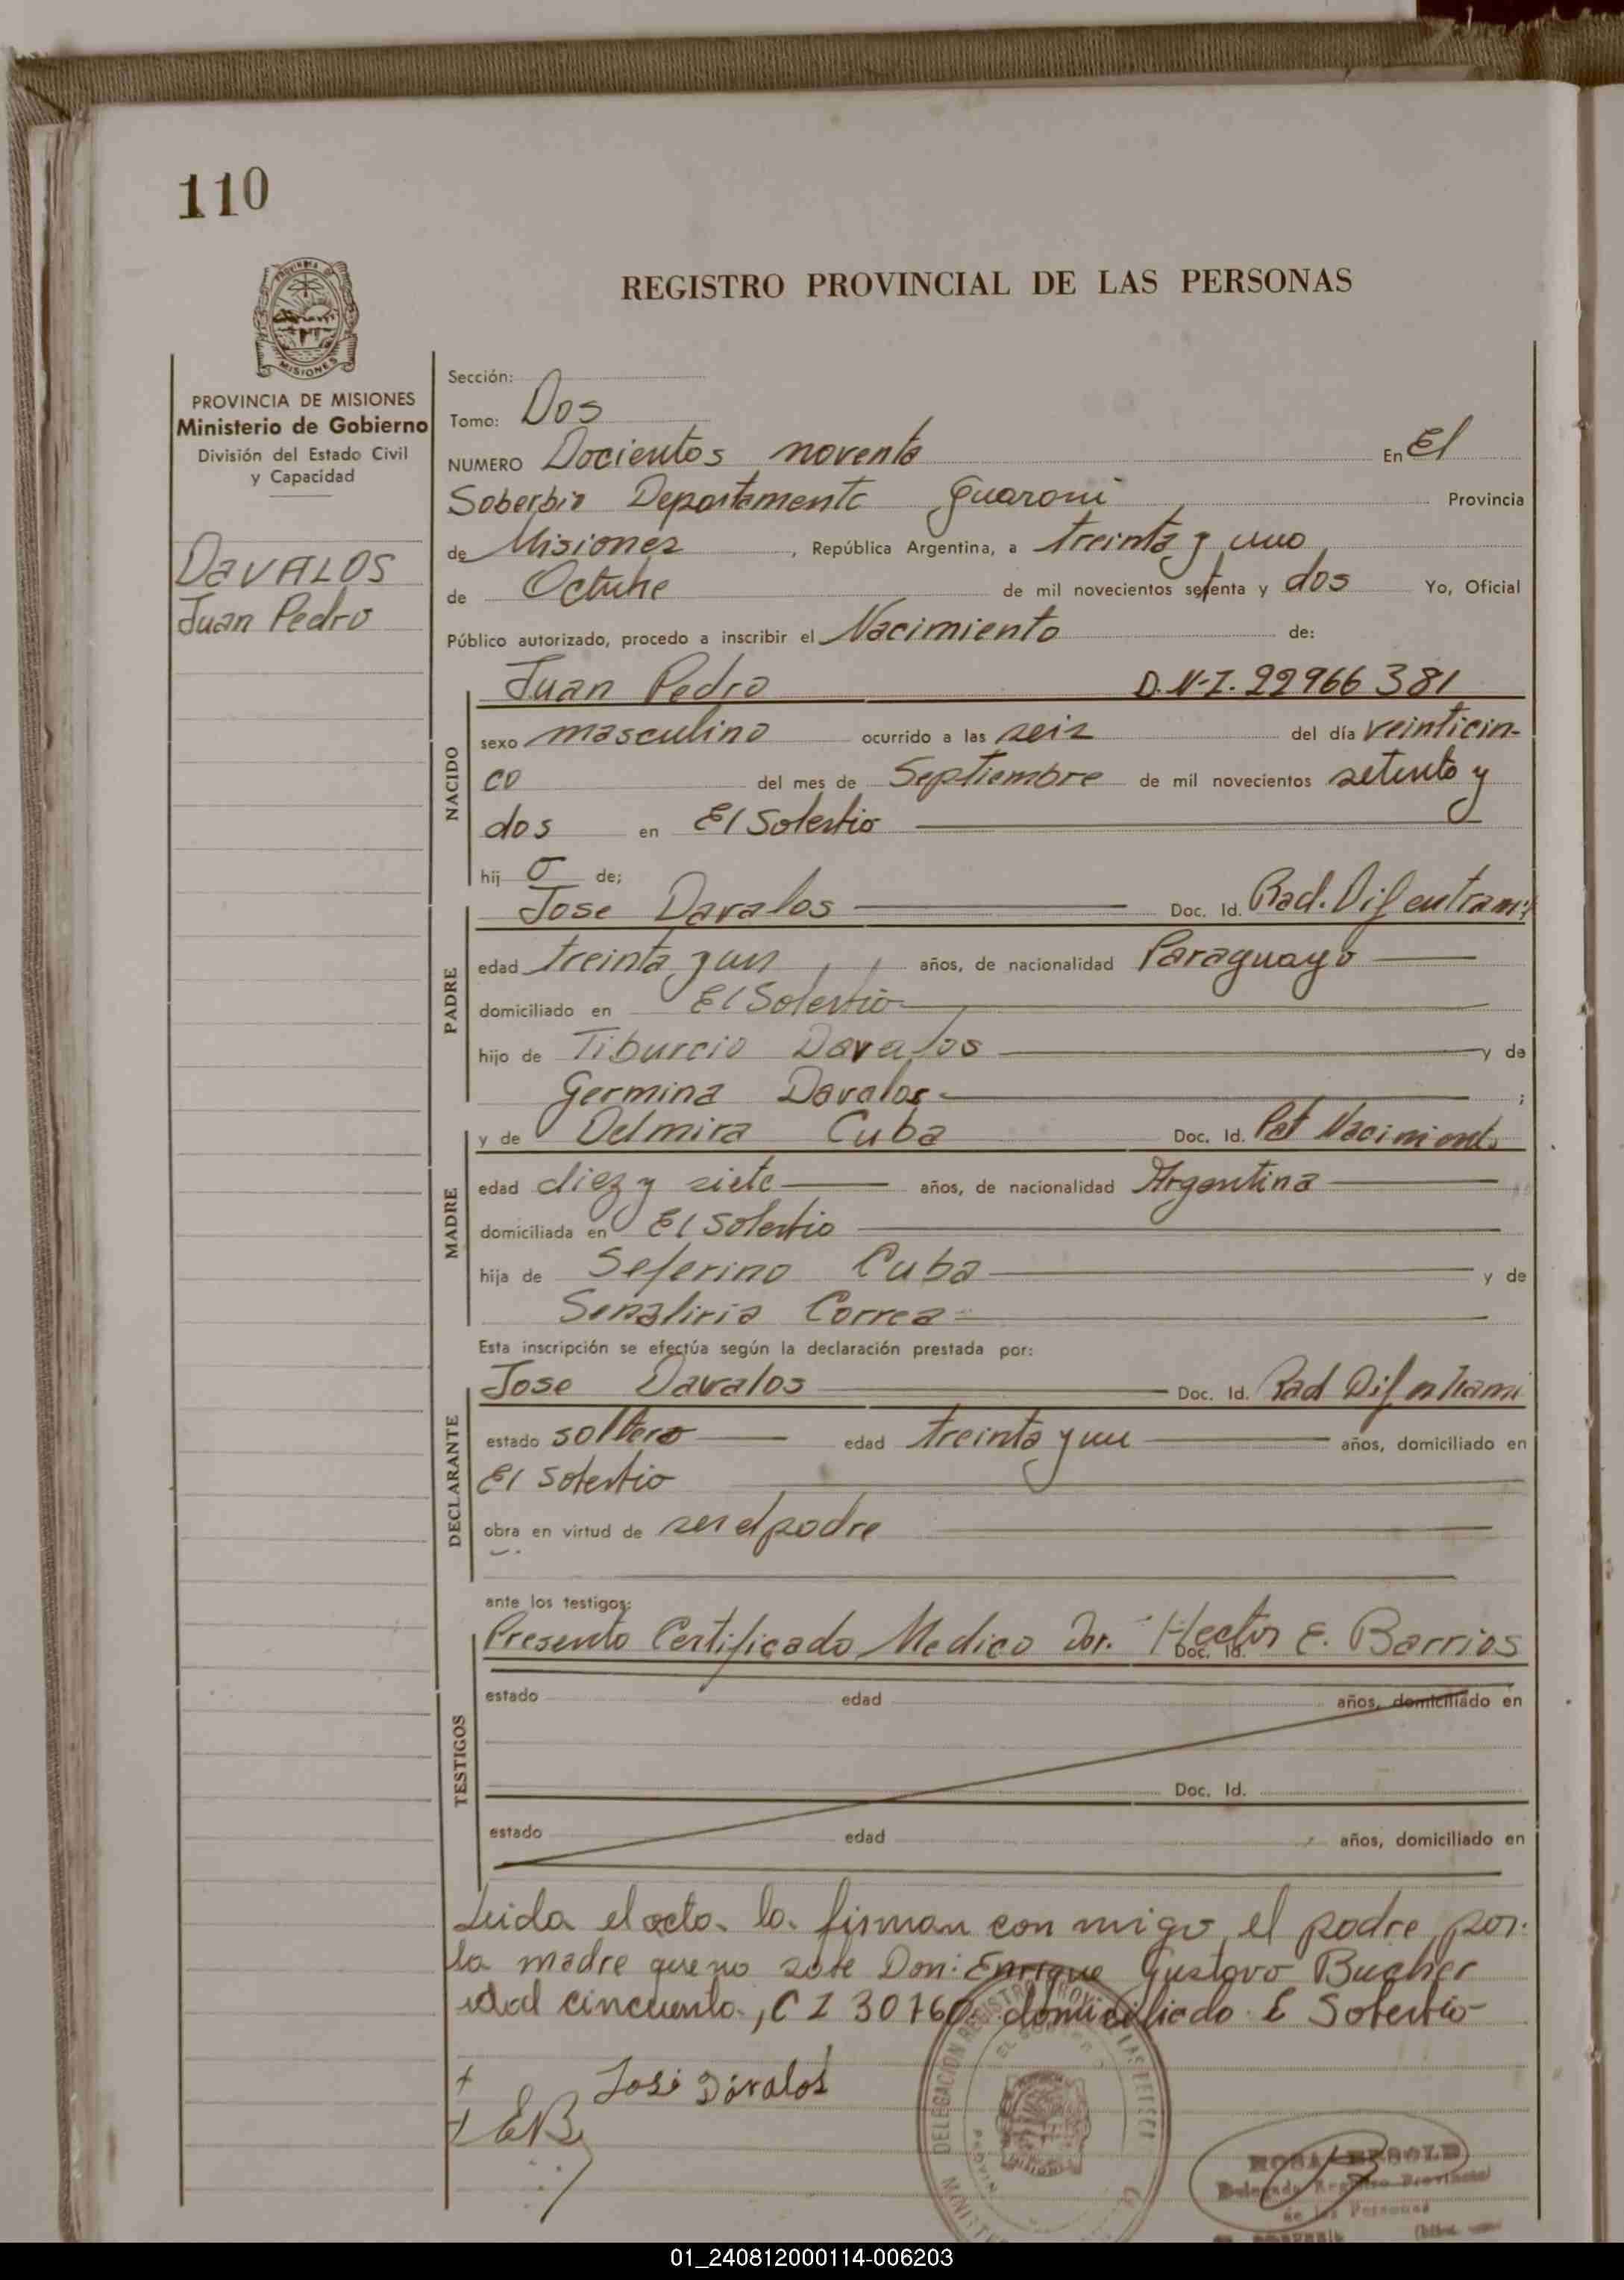 110
REGISTRO PROVINCIAL DE LAS PERSONAS
PROVINCIA DE MISIONES
Ministerio de Gobierno
División del Estado Civil
y Capacidad
DAVALOS
Juan Pedro
Sección:
Tomo: Dos
NUMERO Docientos noventa En El
Soberbio Departamento Guarani Provincia
de Misiones, República Argentina, a treinta y uno
de Octubre de mil novecientos setenta y dos Yo, Oficial
Público autorizado, procedo a inscribir el Nacimiento de:
NACIDO
Juan Pedro D.N.I. 22966381
sexo masculino ocurrido a las seis del día veinticin-
co del mes de Septiembre de mil novecientos setenta y
dos en El Soberbio
hij o de;
PADRE
Jose Davalos Doc. Id. Rad. Dif en trami
edad treinta y un años, de nacionalidad Paraguayo
domiciliado en El Soberbio
hijo de Tiburcio Davalos y de
Germina Davalos ;
MADRE
y de Delmira Cuba Doc. Id. Nacimiento
edad diez y siete años, de nacionalidad Argentina
domiciliada en El Soberbio
hija de Seferino Cuba y de
Correa
Esta inscripción se efectúa según la declaración prestada por:
DECLARANTE
Jose Davalos Doc. Id. Rad Dif en trami
estado soltero edad treinta y un años, domiciliado en
El Soberbio
obra en virtud de ser el padre
ante los testigos:
TESTIGOS
Presento Certificado Medico Dor. Hector E. Barrios
Doc. Id.
estado edad años, domiciliado en
Doc. Id.
estado edad años, domiciliado en
Leida el acta la firman con migo el padre, por
la madre que no sabe Don: Enrique Gustavo Bucher
edad cincuenta, C I 30760 domiciliado E Soberbio
José Dávalos
EB
DELEGACION REGISTRO PROVINCIAL DE LAS PERSONAS
MISIONES
Delegada Registro Provincial
de las Personas
01_240812000114-006203